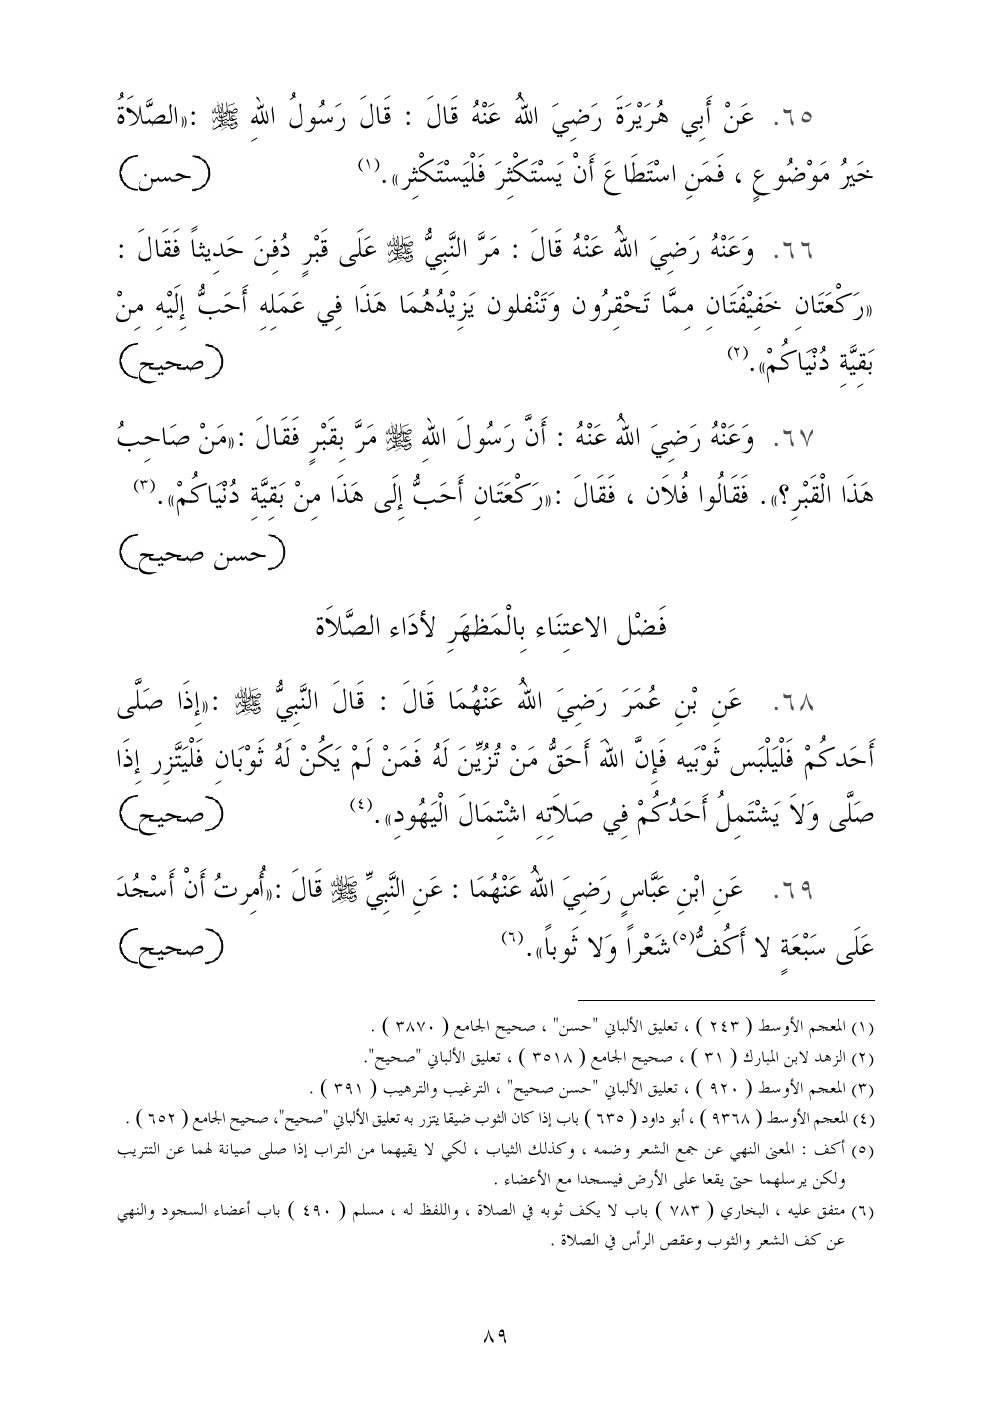 ٦٥. عَنْ أَبِي هُرَيْرَةَ رَضِيَ اللهُ عَنْهُ قَالَ : قَالَ رَسُولُ اللهِ ﷺ :«الصَّلاَةُ
خَيرُ مَوْضُوعٍ ، فَمَنِ اسْتَطَاعَ أَنْ يَسْتَكْثِرَ فَلْيَسْتَكْثِر».(١) (حسن)
٦٦. وَعَنْهُ رَضِيَ اللهُ عَنْهُ قَالَ : مَرَّ النَّبِيُّ ﷺ عَلَى قَبْرٍ دُفِنَ حَدِيثاً فَقَالَ :
«رَكْعَتَانِ خَفِيْفَتَانِ مِمَّا تَحْقِرُون وَتَنْفلون يَزِيْدُهُمَا هَذَا فِي عَمَلِهِ أَحَبُّ إِلَيْهِ مِنْ
بَقِيَّةِ دُنْيَاكُمْ».(٢) (صحيح)
٦٧. وَعَنْهُ رَضِيَ اللهُ عَنْهُ : أَنَّ رَسُولَ اللهِ ﷺ مَرَّ بِقَبْرٍ فَقَالَ :«مَنْ صَاحِبُ
هَذَا الْقَبْرِ؟». فَقَالُوا فُلاَن ، فَقَالَ :«رَكْعَتَانِ أَحَبُّ إِلَى هَذَا مِنْ بَقِيَّةِ دُنْيَاكُمْ».(٣)
(حسن صحيح)
فَضْل الاعتِنَاء بِالْمَظهَرِ لأدَاء الصَّلاَة
٦٨. عَنِ بْنِ عُمَرَ رَضِيَ اللهُ عَنْهُمَا قَالَ : قَالَ النَّبِيُّ ﷺ :«إِذَا صَلَّى
أَحَدكُمْ فَلْيَلْبَس ثَوْبَيه فَإِنَّ اللهَ أَحَقُّ مَنْ تُزُيِّنَ لَهُ فَمَنْ لَمْ يَكُنْ لَهُ ثَوْبَانِ فَلْيَتَّزِر إِذَا
صَلَّى وَلاَ يَشْتَمِلُ أَحَدُكُمْ فِي صَلاَتِهِ اشْتِمَالَ الْيَهُودِ».(٤) (صحيح)
٦٩. عَنِ ابْنِ عَبَّاسٍ رَضِيَ اللهُ عَنْهُمَا : عَنِ النَّبِيِّ ﷺ قَالَ :«أُمِرتُ أَنْ أَسْجُدَ
عَلَى سَبْعَةٍ لا أَكُفُّ(٥)شَعْراً وَلا ثَوباً».(٦) (صحيح)
(١) المعجم الأوسط ( ٢٤٣ ) ، تعليق الألباني "حسن" ، صحيح الجامع ( ٣٨٧٠ ) .
(٢) الزهد لابن المبارك ( ٣١ ) ، صحيح الجامع ( ٣٥١٨ ) ، تعليق الألباني "صحيح".
(٣) المعجم الأوسط ( ٩٢٠ ) ، تعليق الألباني "حسن صحيح" ، الترغيب والترهيب ( ٣٩١ ) .
(٤) المعجم الأوسط ( ٩٣٦٨ ) ، أبو داود ( ٦٣٥ ) باب إذا كان الثوب ضيقا يتزر به تعليق الألباني "صحيح"، صحيح الجامع ( ٦٥٢ ) .
(٥) أكف : المعنى النهي عن جمع الشعر وضمه ، وكذلك الثياب ، لكي لا يقيهما من التراب إذا صلى صيانة لهما عن التتريب
ولكن يرسلهما حتى يقعا على الأرض فيسجدا مع الأعضاء .
(٦) متفق عليه ، البخاري ( ٧٨٣ ) باب لا يكف ثوبه في الصلاة ، واللفظ له ، مسلم ( ٤٩٠ ) باب أعضاء السجود والنهي
عن كف الشعر والثوب وعقص الرأس في الصلاة .
٨٩